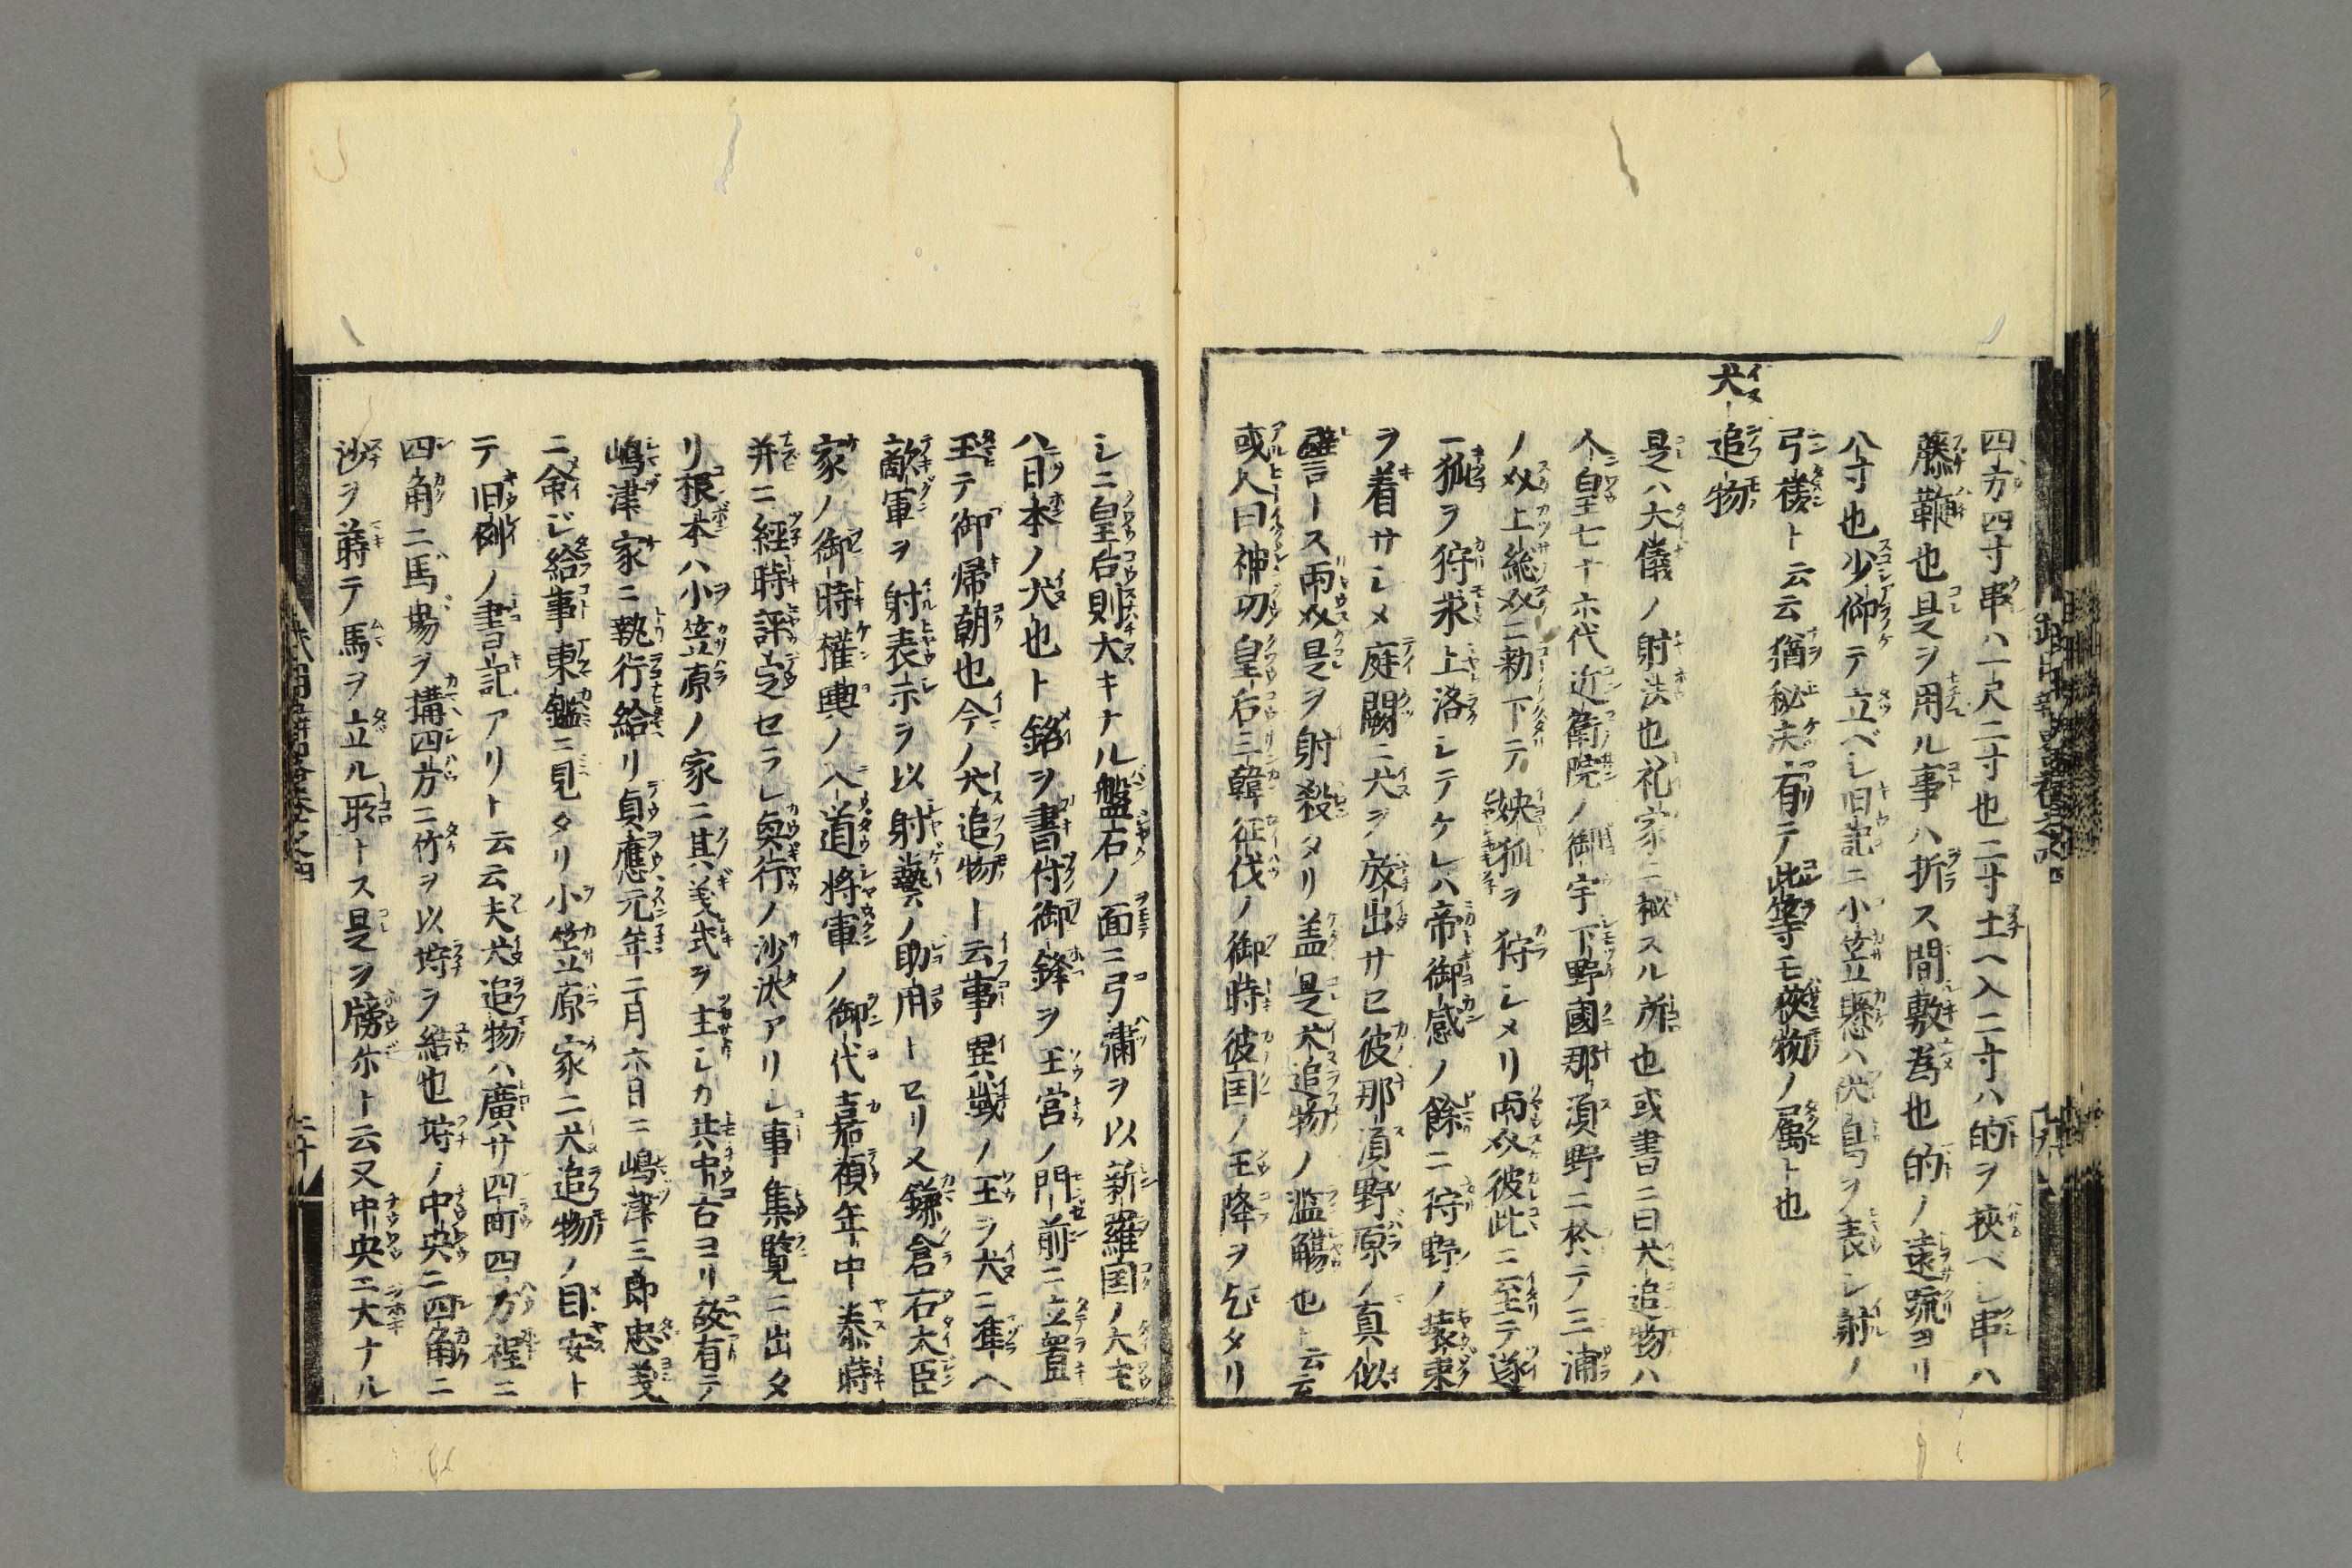 四方四寸串ハ一尺二寸也二寸土ヘ入二寸ハ的ヲ挾ベシ串ハ
藤鞭也是ヲ用ル事ハ折ス間敷為也的ノ遠疏ヨリ
八寸也少仰テ立ベシ旧記ニ小笠懸ハ伏鳥ヲ表シ射ノ
弓禮ト云云猶秘决有テ此等モ挾物ノ属ト也
犬追物
是ハ大儀ノ射法也礼家ニ秘スル所也或書ニ曰犬追物ハ
人皇七十六代近衛院ノ御宇下野國那湏野ニ於テ三浦
ノ介上総介ニ勅下テ妖狐ヲ狩シメリ兩介彼此ニ至テ遂
一狐ヲ狩求上洛シテケレハ帝御感ノ餘ニ狩野ノ装束
ヲ着サシメ庭闕ニ犬ヲ放出サセ彼那湏野原ノ真似
トス兩介是ヲ射殺タリ盖是犬追物ノ濫觴也ト云云
或人曰神功皇后三韓征伐ノ御時彼国ノ王降ヲ乞タリ
シニ皇后則大キナル盤石ノ面ニ弓彇ヲ以新羅国ノ大王
ハ日本ノ犬也ト銘ヲ書付御鋒ヲ王宮ノ門前ニ立置
玉テ御帰朝也今ノ犬追物ト云事異域ノ王ヲ犬ニ准ヘ
敵軍ヲ射表示ヲ以射藝ノ助用トセリ又鎌倉右大臣
家ノ御時權輿ノ入道将軍ノ御代嘉禎年中泰時
并ニ經時評定セラレ奥行ノ沙汰アリシ事集覧ニ出タ
リ根本ハ小笠原ノ家ニ其義式ヲ主シカ共中古ヨリ故有テ
嶋津家ニ執行給リ貞應元年二月六日ニ嶋津三郎忠義
ニ命ジ給事東鑑ニ見タリ小笠原家ニ犬追物ノ目安ト
テ旧例ノ書記アリト云云夫犬追物ハ廣サ四町四方程ニ
四角ニ馬場ヲ搆四方ニ竹ヲ以埒ヲ結也埒ノ中央ニ四角ニ
沙ヲ蒔テ馬ヲ立ル所トス是ヲ牓示ト云又中央ニ大ナル